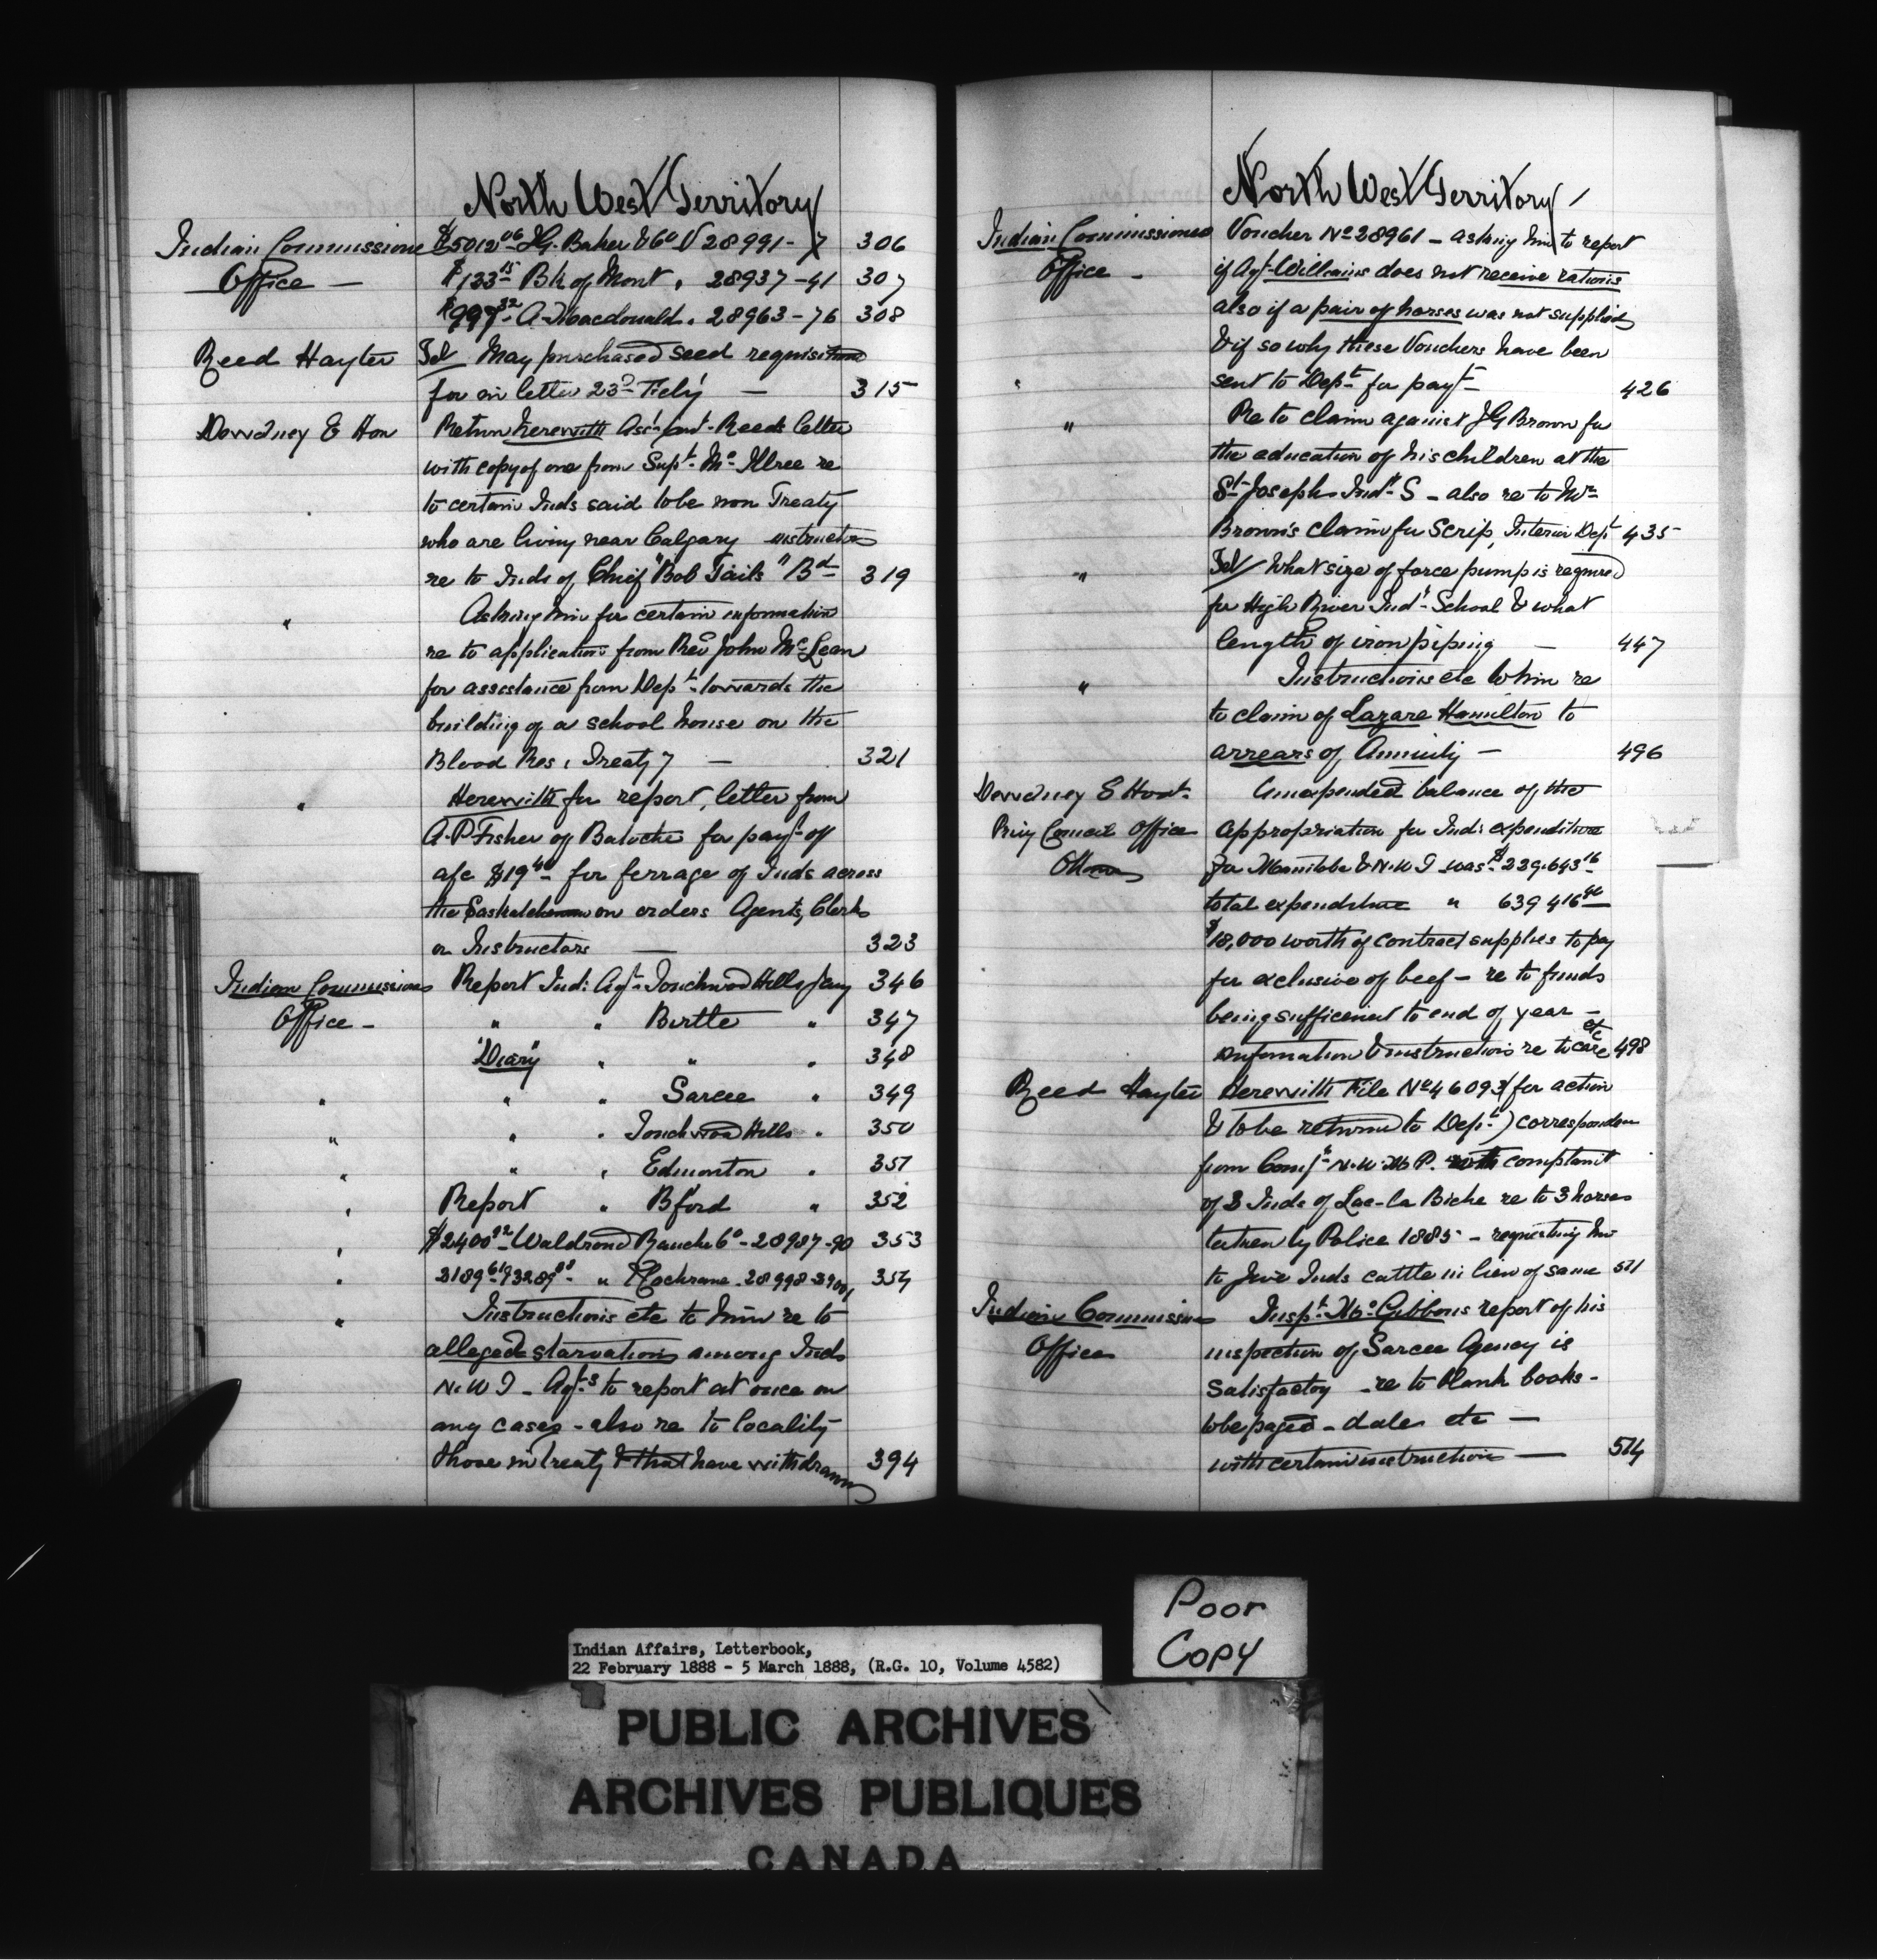 North West Territory
Indian Commissioner $5012.06 J.G. Baker & Co V 28991-7 306
Office — $133.15 Bk of Mont " 28937-41 307
$997.32 A. Macdonald " 28963-76 308
Reed Hayter Tel/ May purchased seed requisitioned
for in letter 23d Feby — 315
Dewdney E Hon Return herewith Asst Comr Reeds letter
with copy of one from Supt Mc Illree re
to certain Inds said to be non Treaty
who are living near Calgary instructions
re to Inds of Chief "Bob Tails" Bd 319
" Asking him for certain information
re to application from Rev John McLean
for assistance from Dept towards the
building of a school house on the
Blood Res, Treaty 7 — 321
" Herewith for report, letter from
A.P Fisher of Batoche for payt of
a/c $19.40 for ferrage of Inds across
the Saskatchewan on orders Agents, Clerks
or Instructors — 323
Indian Commissioner Report Ind: Agt Touchwood Hills Jany 346
Office - " " Birtle " 347
"Diary" " " " 348
" " " Sarcee " 349
" " " Touchwood Hills " 350
" " " Edmonton " 351
" Report " Bford " 352
" $2400.92 Waldrond Ranche Co - 28987-90 353
" 3189.61 & 3289.88 " Cochrane 28998- 354
" Instructions etc to him re to
alleged starvation among Inds
N.W T - Agts to report at once on
any cases - also re to locality
those in treaty & that have withdrawn 394
North West Territory
Indian Commissioner Voucher No 28961 - asking him to report
Office - if Agt Williams does not receive rations
also if a pair of horses was not supplied
& if so why these Vouchers have been
" sent to Dept for payt — 426
" Re to claim against J G Brown for
the education of his children at the
St Josephs Indl S - also re to Mr
Brown's claim for Scrip, Interior Dept 435
" Tel/ What size of force pump is required
for High River Indl School & what
length of iron piping — 447
" Instructions etc to him re
to claim of Lazare Hamilton to
arrears of Annuity — 496
Dewdney E Hon Unexpended balance of the
Privy Council Office appropriation for Inds expenditure
Ottawa for Manitoba & N.W T was $239.643.16
total expenditure " 639 416
$18,000 worth of contract supplies to pay
for exclusive of beef - re to funds
being sufficient to end of year -
information & instructions re to care etc 498
Reed Hayter Herewith File No 46093 (for action
& to be returned to Dept) correspondence
from Comr N.W.M P. with complaint
of 3 Inds of Lac-la Biche re to 3 horses
taken by Police 1885 - requesting him
to give Inds cattle in lieu of same 511
Indian Commissioner Inspt Mc Gibbons report of his
Office inspection of Sarcee Agency is
satisfactory - re to blank books -
to be paged - dates etc —
with certain instructions — 514
Poor
Copy
Indian Affairs, Letterbook,
22 February 1888 - 5 March 1888, (R.G. 10, Volume 4582)
PUBLIC ARCHIVES
ARCHIVES PUBLIQUES
CANADA